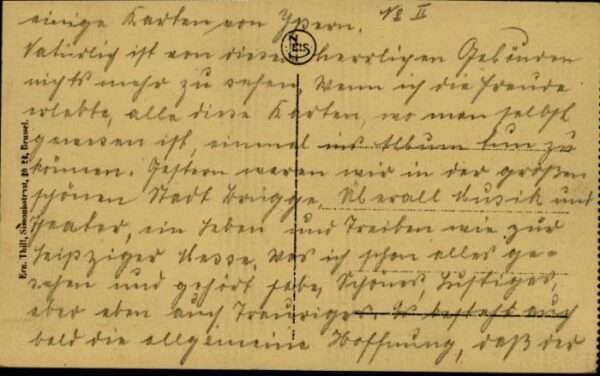 einige Karten von Ypern. No II
Natürlich ist von diesen herrlichen Gebäuden
nichts mehr zu sehen, Wenn ich die Freude
erlebte, alle diese Karten, wo man selbst
gewesen ist, einmal ins Album tun zu
können. Gestern waren wir in der großen
schönen Stadt Brügge. Überall Musik und
Theater, ein Leben und Treiben wie zur
Leipziger Messe, Was ich schon alles ge-
sehen und gehört habe, Schönes, Lustiges,
aber eben auch Trauriges. Es besteht auch
bald die allgemeine Hoffnung, daß der
NELS
Ern. Thill, Brussel.